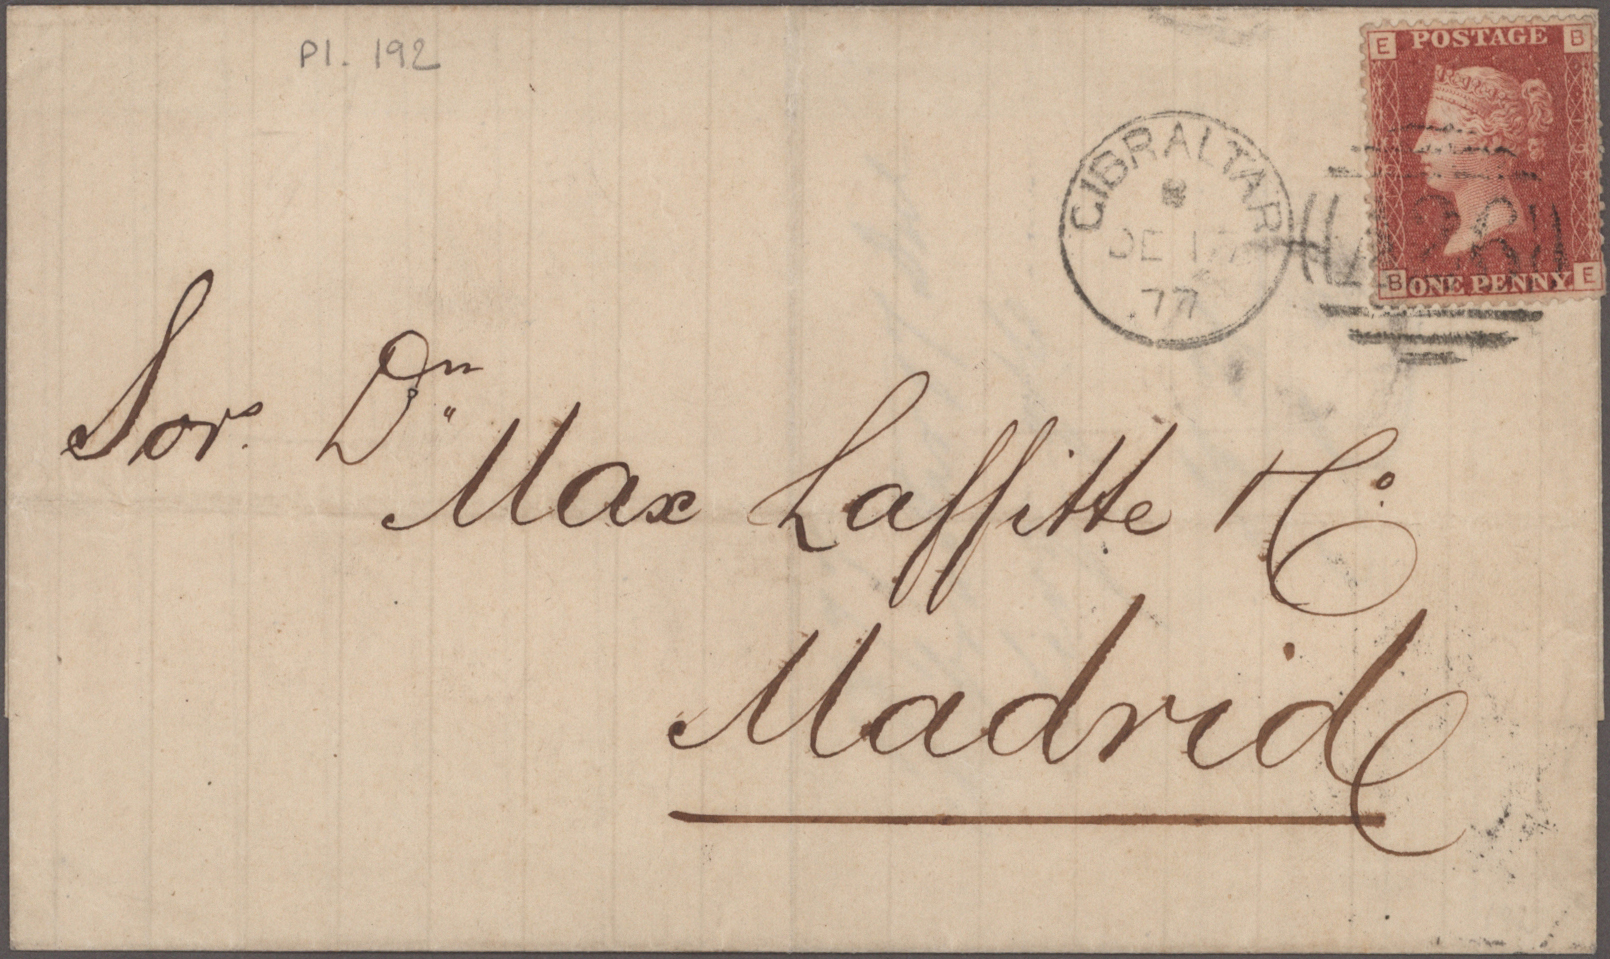 Pl. 192
E POSTAGE B
GIBRALTAR
B
DE 17
77
A26
B ONE PENNY E
Sor. Dn
Max Laffitte & Co
Madrid